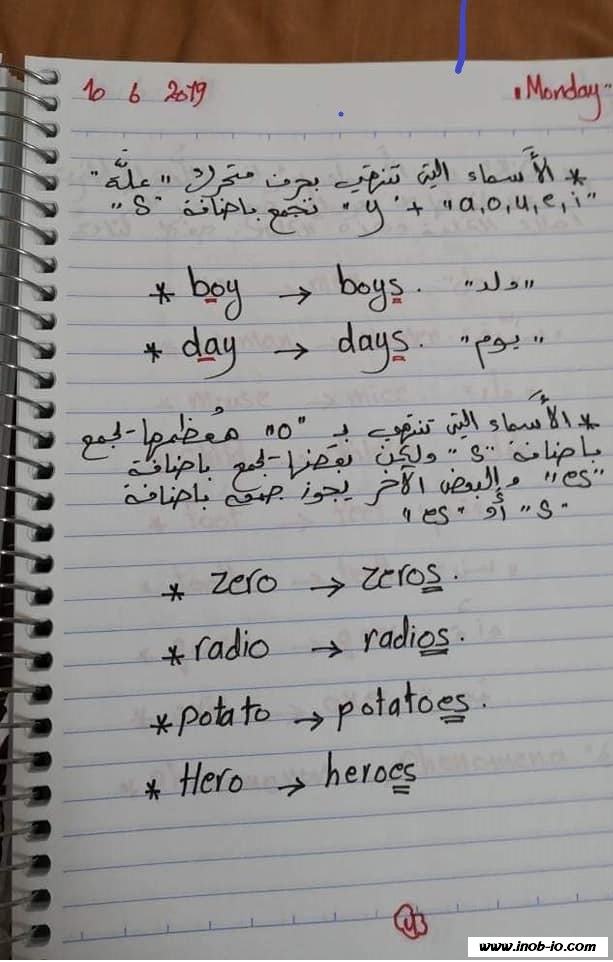 10 6 2019 "Monday"
* الأَسماء التي تنتهي بحرف متحرك "علَّة"
"a,o,u,e,i" + "y" تجمع باضافة "S"
* boy → boys. "ولد"
* day → days. "يوم"
* الأَسماء التي تنتهي بـ "o" مُعظمها تجمع
باضافة "S" ولكن بعضها تجمع باضافة
"es" والبعض الآخر يجوز جمعه باضافة
"S" أو "es"
* zero → zeros.
* radio → radios.
* potato → potatoes.
* Hero → heroes
www.inob-io.com